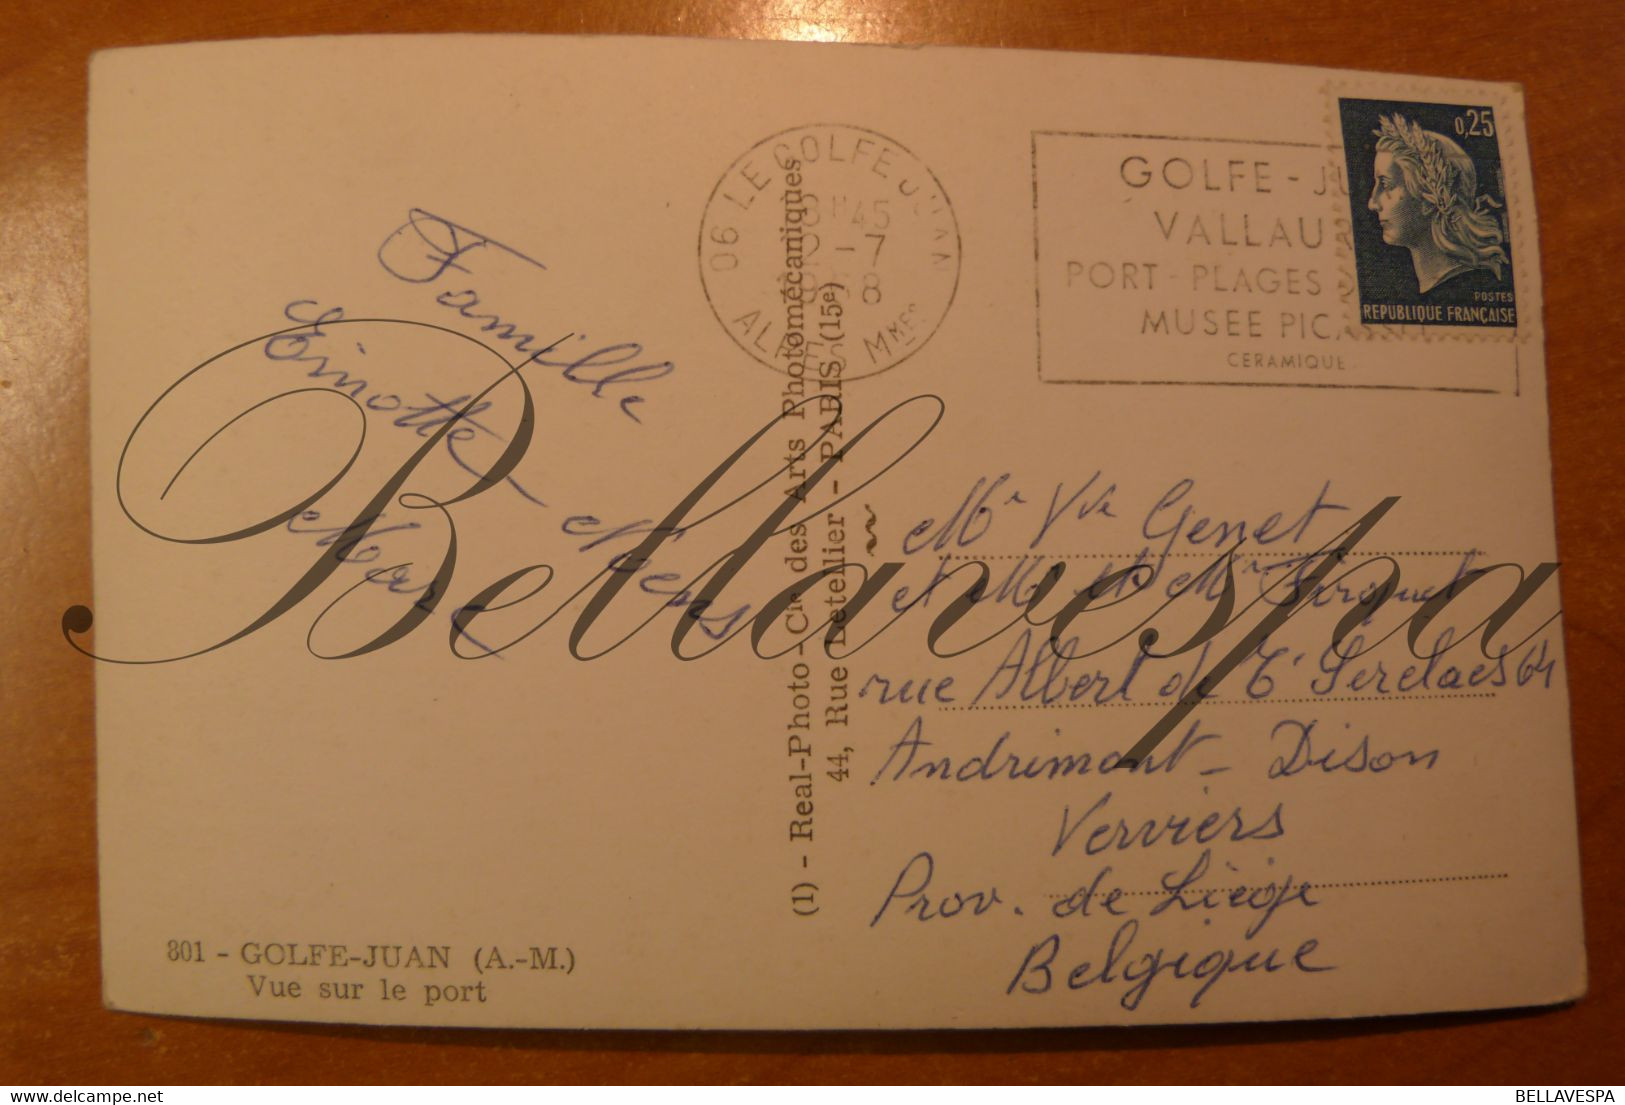 06 LE GOLFE JUAN
8H45
-7
8
ALPES Mmes
GOLFE-JU
VALLAU
PORT-PLAGES
MUSEE PICASSO
CERAMIQUE
0,25
POSTES
REPUBLIQUE FRANÇAISE
Famille
Einotte - Nens
Marc
(1) - Real-Photo - Cie des Arts Photomécaniques
44, Rue Letellier - PARIS (15e)
Mr Vve Genet
et Mr et Mr Firquet
rue Albert de T'Serclaes 64
Andrimont - Dison
Verviers
Prov. de Liège
Belgique
801 - GOLFE-JUAN (A.-M.)
Vue sur le port
Bellavespa
delcampe.net
BELLAVESPA